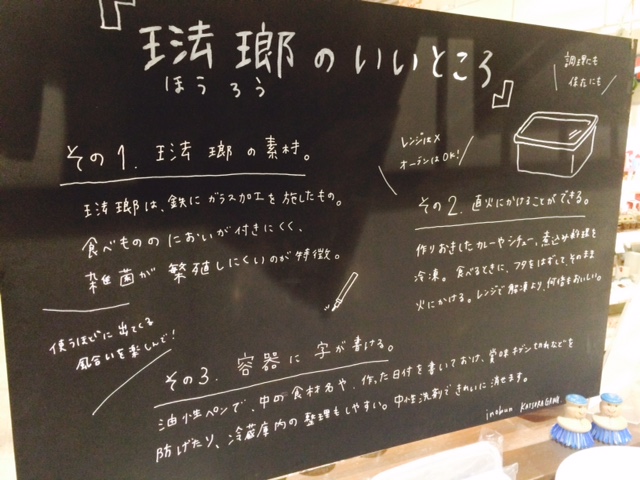 『琺瑯のいいところ』
ほうろう
調理にも
保存にも
その1. 琺瑯の素材。
琺瑯は、鉄にガラス加工を施したもの。
食べもののにおいが付きにくく、
雑菌が繁殖しにくいのが特徴。
使うほどに出てくる
風合いを楽しんで!
レンジは×
オーブンはOK!
その2. 直火にかけることができる。
作りおきしたカレーやシチュー、煮込み料理を
冷凍。食べるときに、フタをはずして、そのまま
火にかける。レンジで解凍より、何倍もおいしい。
その3. 容器に字が書ける。
油性ペンで、中の食材名や、作った日付を書いておけば、賞味キゲン切れなどを
防げたり、冷蔵庫内の整理もしやすい。中性洗剤できれいに消せます。
inobun KATSURAGAWA